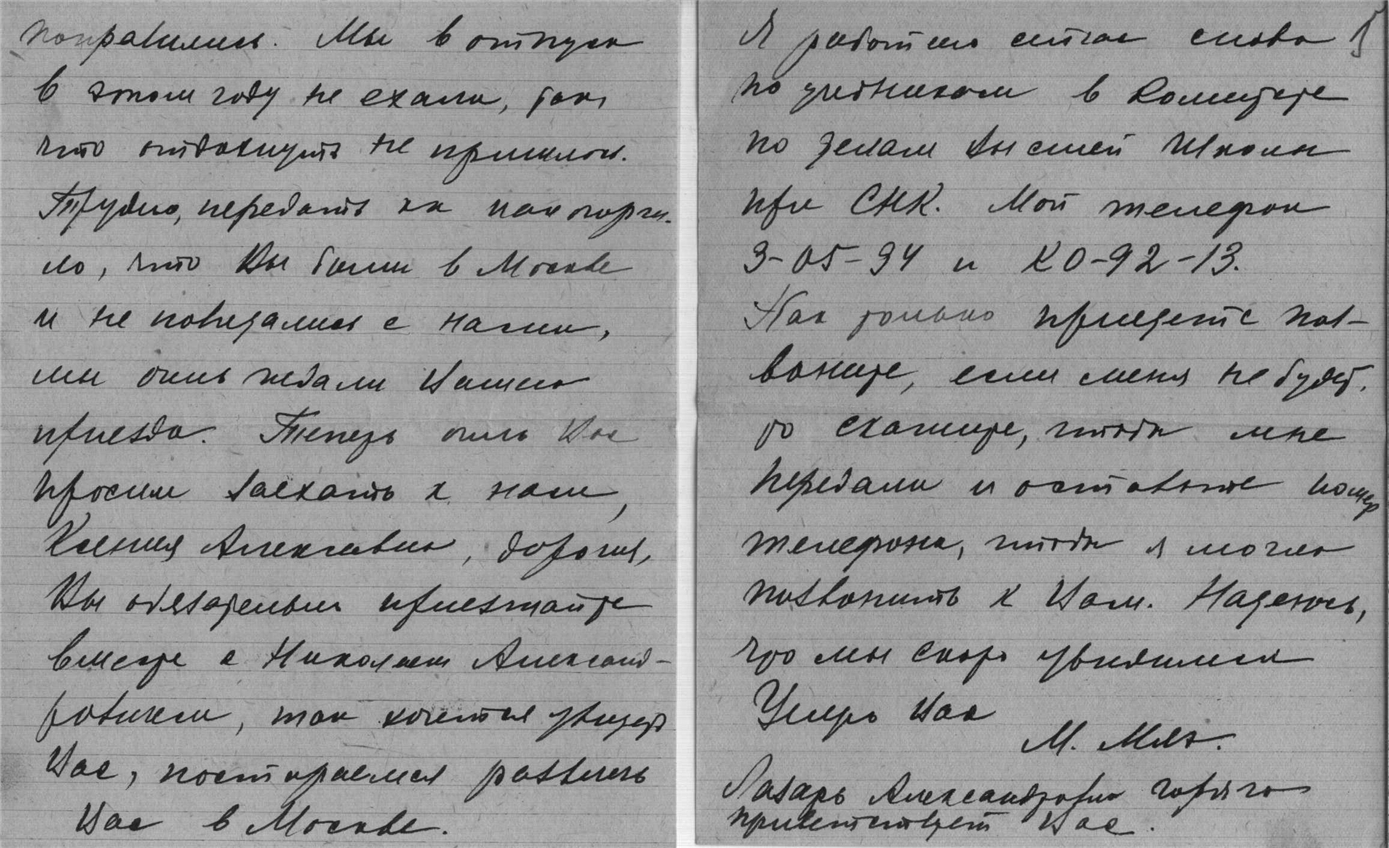 поправились. Мы в отпуск
в этом году не ехали, так
что отдохнуть не пришлось.
Трудно передать как нас огорчи-
ло, что Вы были в Москве
и не повидались с нами,
мы очень ждали Вашего
приезда. Теперь очень Вас
просим заехать к нам,
Ксения Алексеевна, дорогая,
Вы обязательно приезжайте
вместе с Николаем Александ-
ровичем, так хочется увидеть
Вас, постараемся развлечь
Вас в Москве.
Я работаю сейчас снова
по учебникам в Комитете
по делам Высшей Школы
при СНК. Мой телефон
3-05-34 и К0-92-13.
Как только приедете поз-
воните, если меня не будет,
то скажите, чтобы мне
передали и оставьте номер
телефона, чтобы я могла
позвонить к Вам. Надеюсь,
что мы скоро увидимся
Целую Вас
М.
Лазарь Александрович горячо
приветствует Вас.